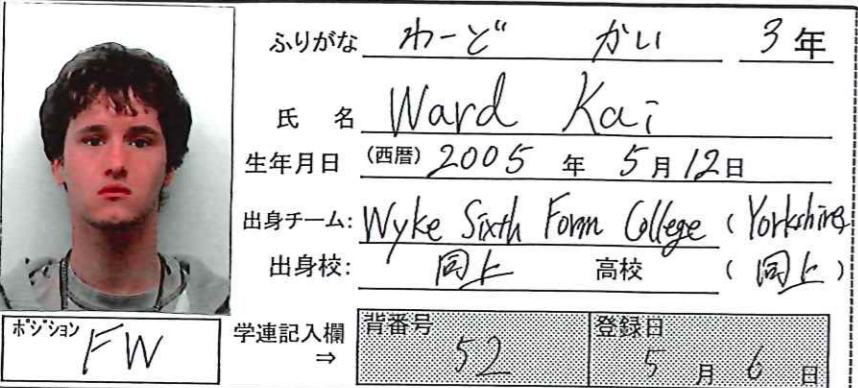 ふりがな わーど かい 3年
氏 名 Ward Kai
生年月日 (西暦) 2005 年 5月12日
出身チーム: Wyke Sixth Form College (Yorkshire)
出身校: 同上 高校 (同上)
ポジション FW
学連記入欄 ⇒
背番号 52
登録日 5 月 6 日